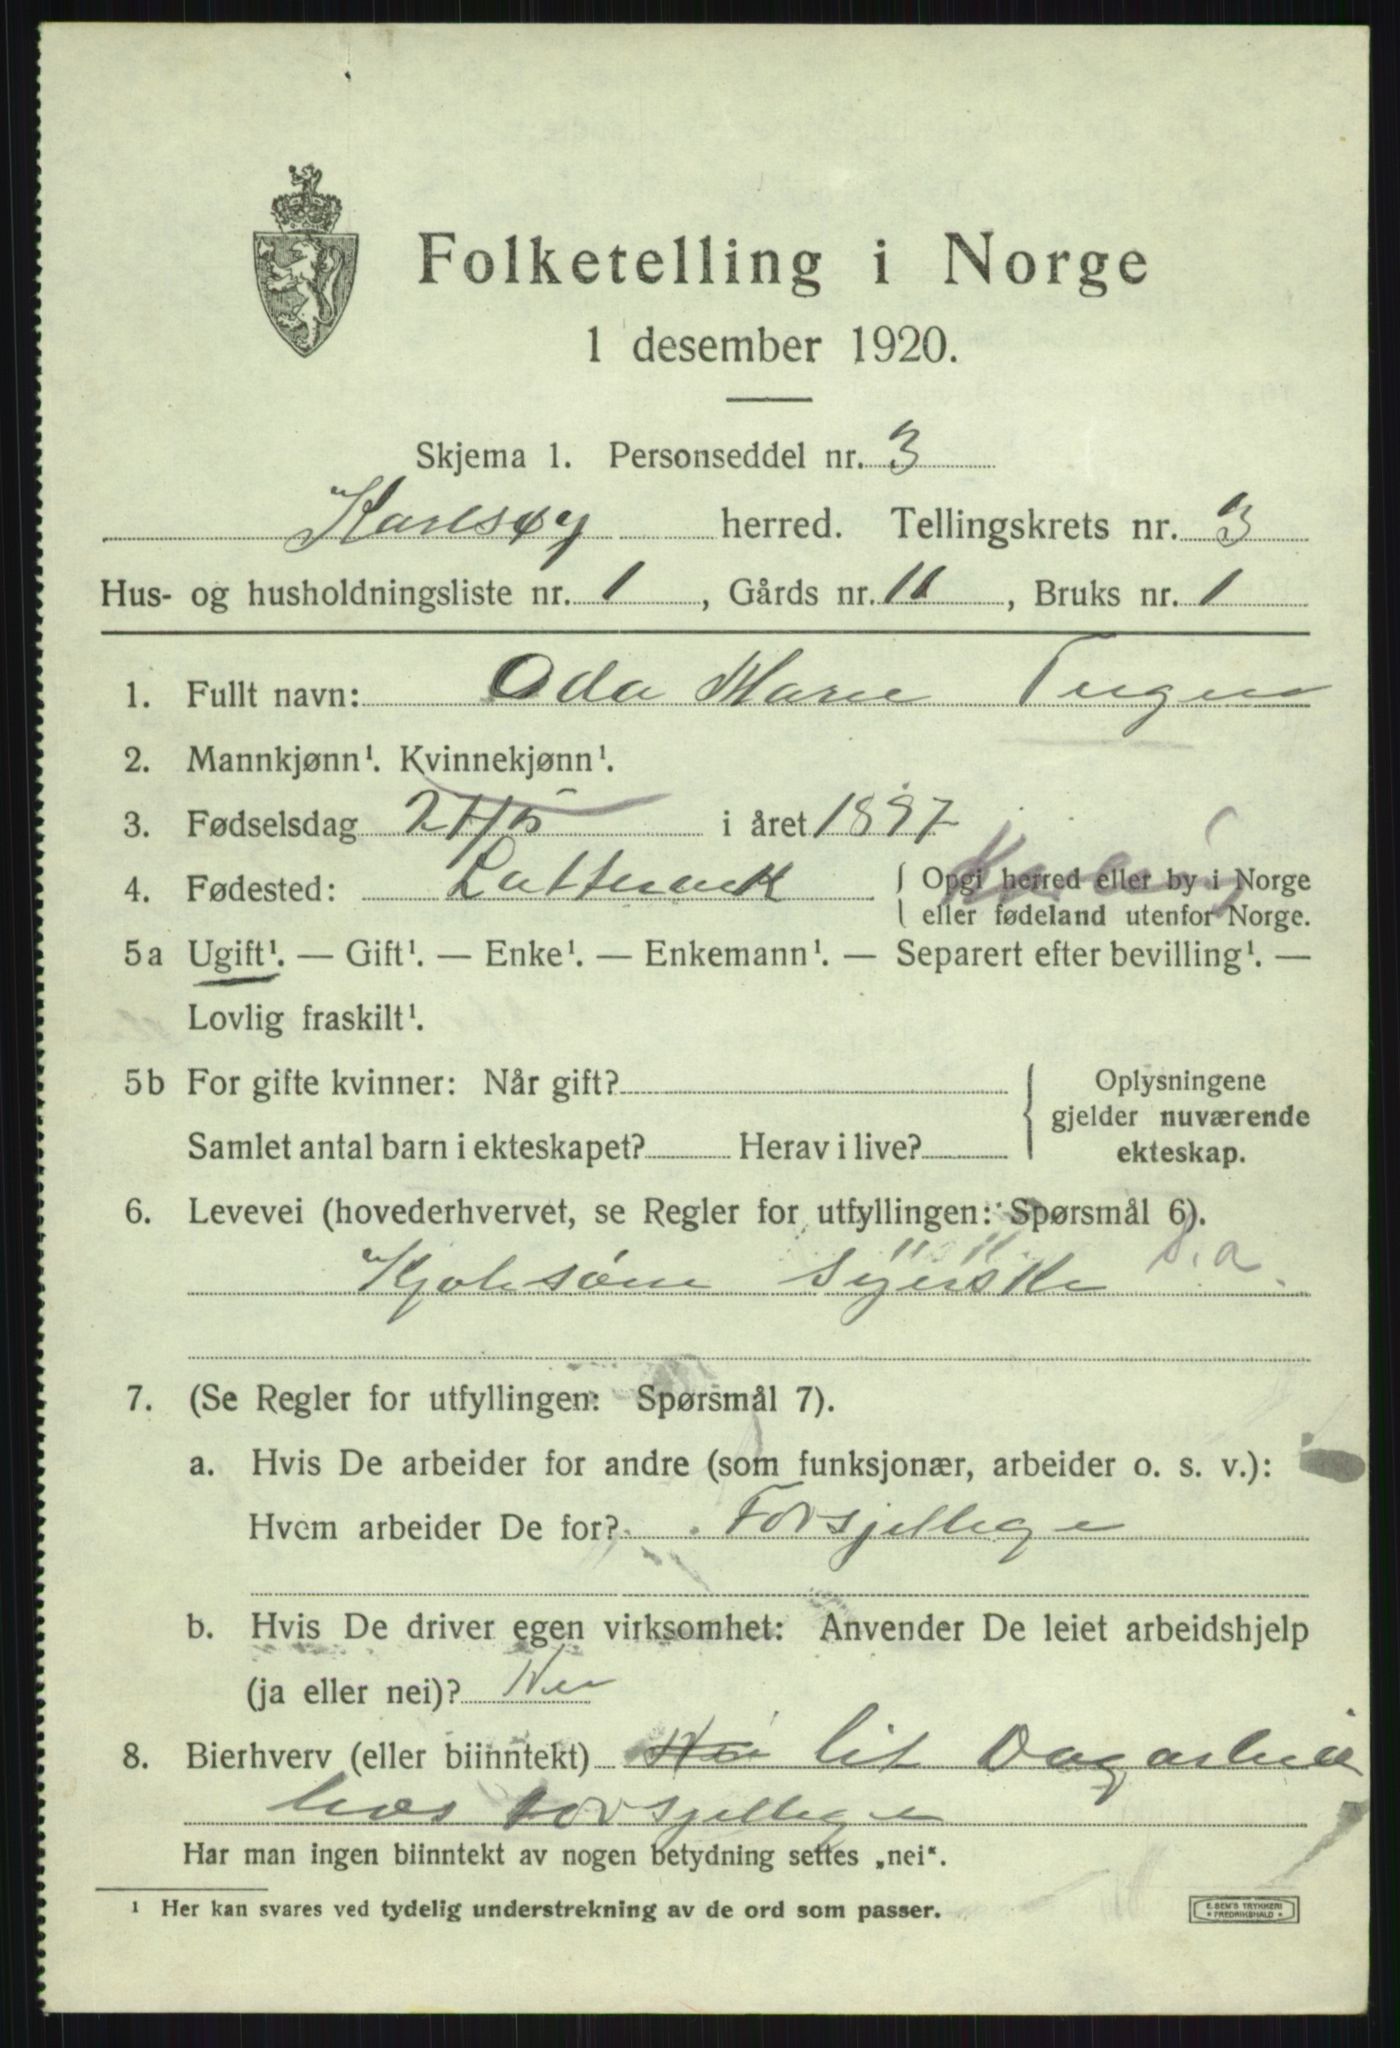 Folketelling i Norge
1 desember 1920.
Skjema 1. Personseddel nr. 3
Karlsøy herred. Tellingskrets nr. 3
Hus- og husholdningsliste nr. 1, Gårds nr. 11, Bruks nr. 1
1. Fullt navn: Oda Marie
2. Mannkjønn¹. Kvinnekjønn¹.
3. Fødselsdag 21/5 i året 1897
4. Fødested: { Opgi herred eller by i Norge
eller fødeland utenfor Norge.
5a Ugift¹. — Gift¹. — Enke¹. — Enkemann¹. — Separert efter bevilling¹. —
Lovlig fraskilt¹.
5b For gifte kvinner: Når gift? { Oplysningene
gjelder nuværende
Samlet antal barn i ekteskapet? Herav i live?
ekteskap.
6. Levevei (hovederhvervet, se Regler for utfyllingen: Spørsmål 6).
Kjolesøm syerske s.a.
7. (Se Regler for utfyllingen: Spørsmål 7).
a. Hvis De arbeider for andre (som funksjonær, arbeider o. s. v.):
Hvem arbeider De for? Forsjellege
b. Hvis De driver egen virksomhet: Anvender De leiet arbeidshjelp
(ja eller nei)? Nei
8. Bierhverv (eller biinntekt) Nei lit Dagarbeide
hos forsjellege
Har man ingen biinntekt av nogen betydning settes „nei“.
¹ Her kan svares ved tydelig understrekning av de ord som passer.
E. SEM'S TRYKKERI
* FREDRIKSHALD *